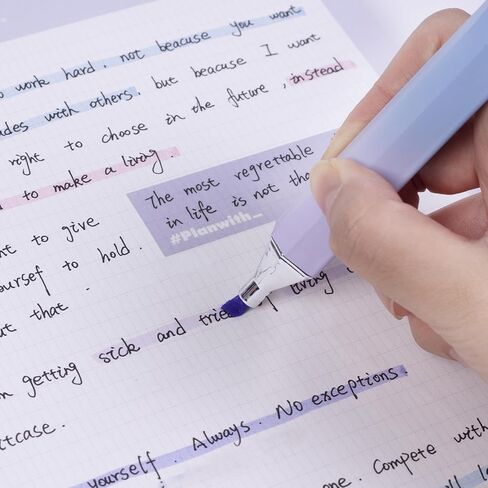 work hard, not beacuse you want
ades with others, but beacuse I want
right to choose in the future, instead
to make a living.
The most regrettable
in life is not tha
#Planwith_
nt to give
oursef to hold.
ut that.
m getting sick and tire living
itcase.
yourself. Always. No exceptions.
one. Compete with